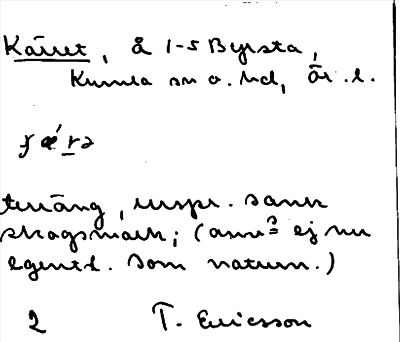 Kärret, å 1-5 Byrsta,
Kumla sn o. hd, Ör. l.
terräng, urspr. sank
skogsmark; (anv. ej nu
egentl. som naturn.)
2 T. Ericsson